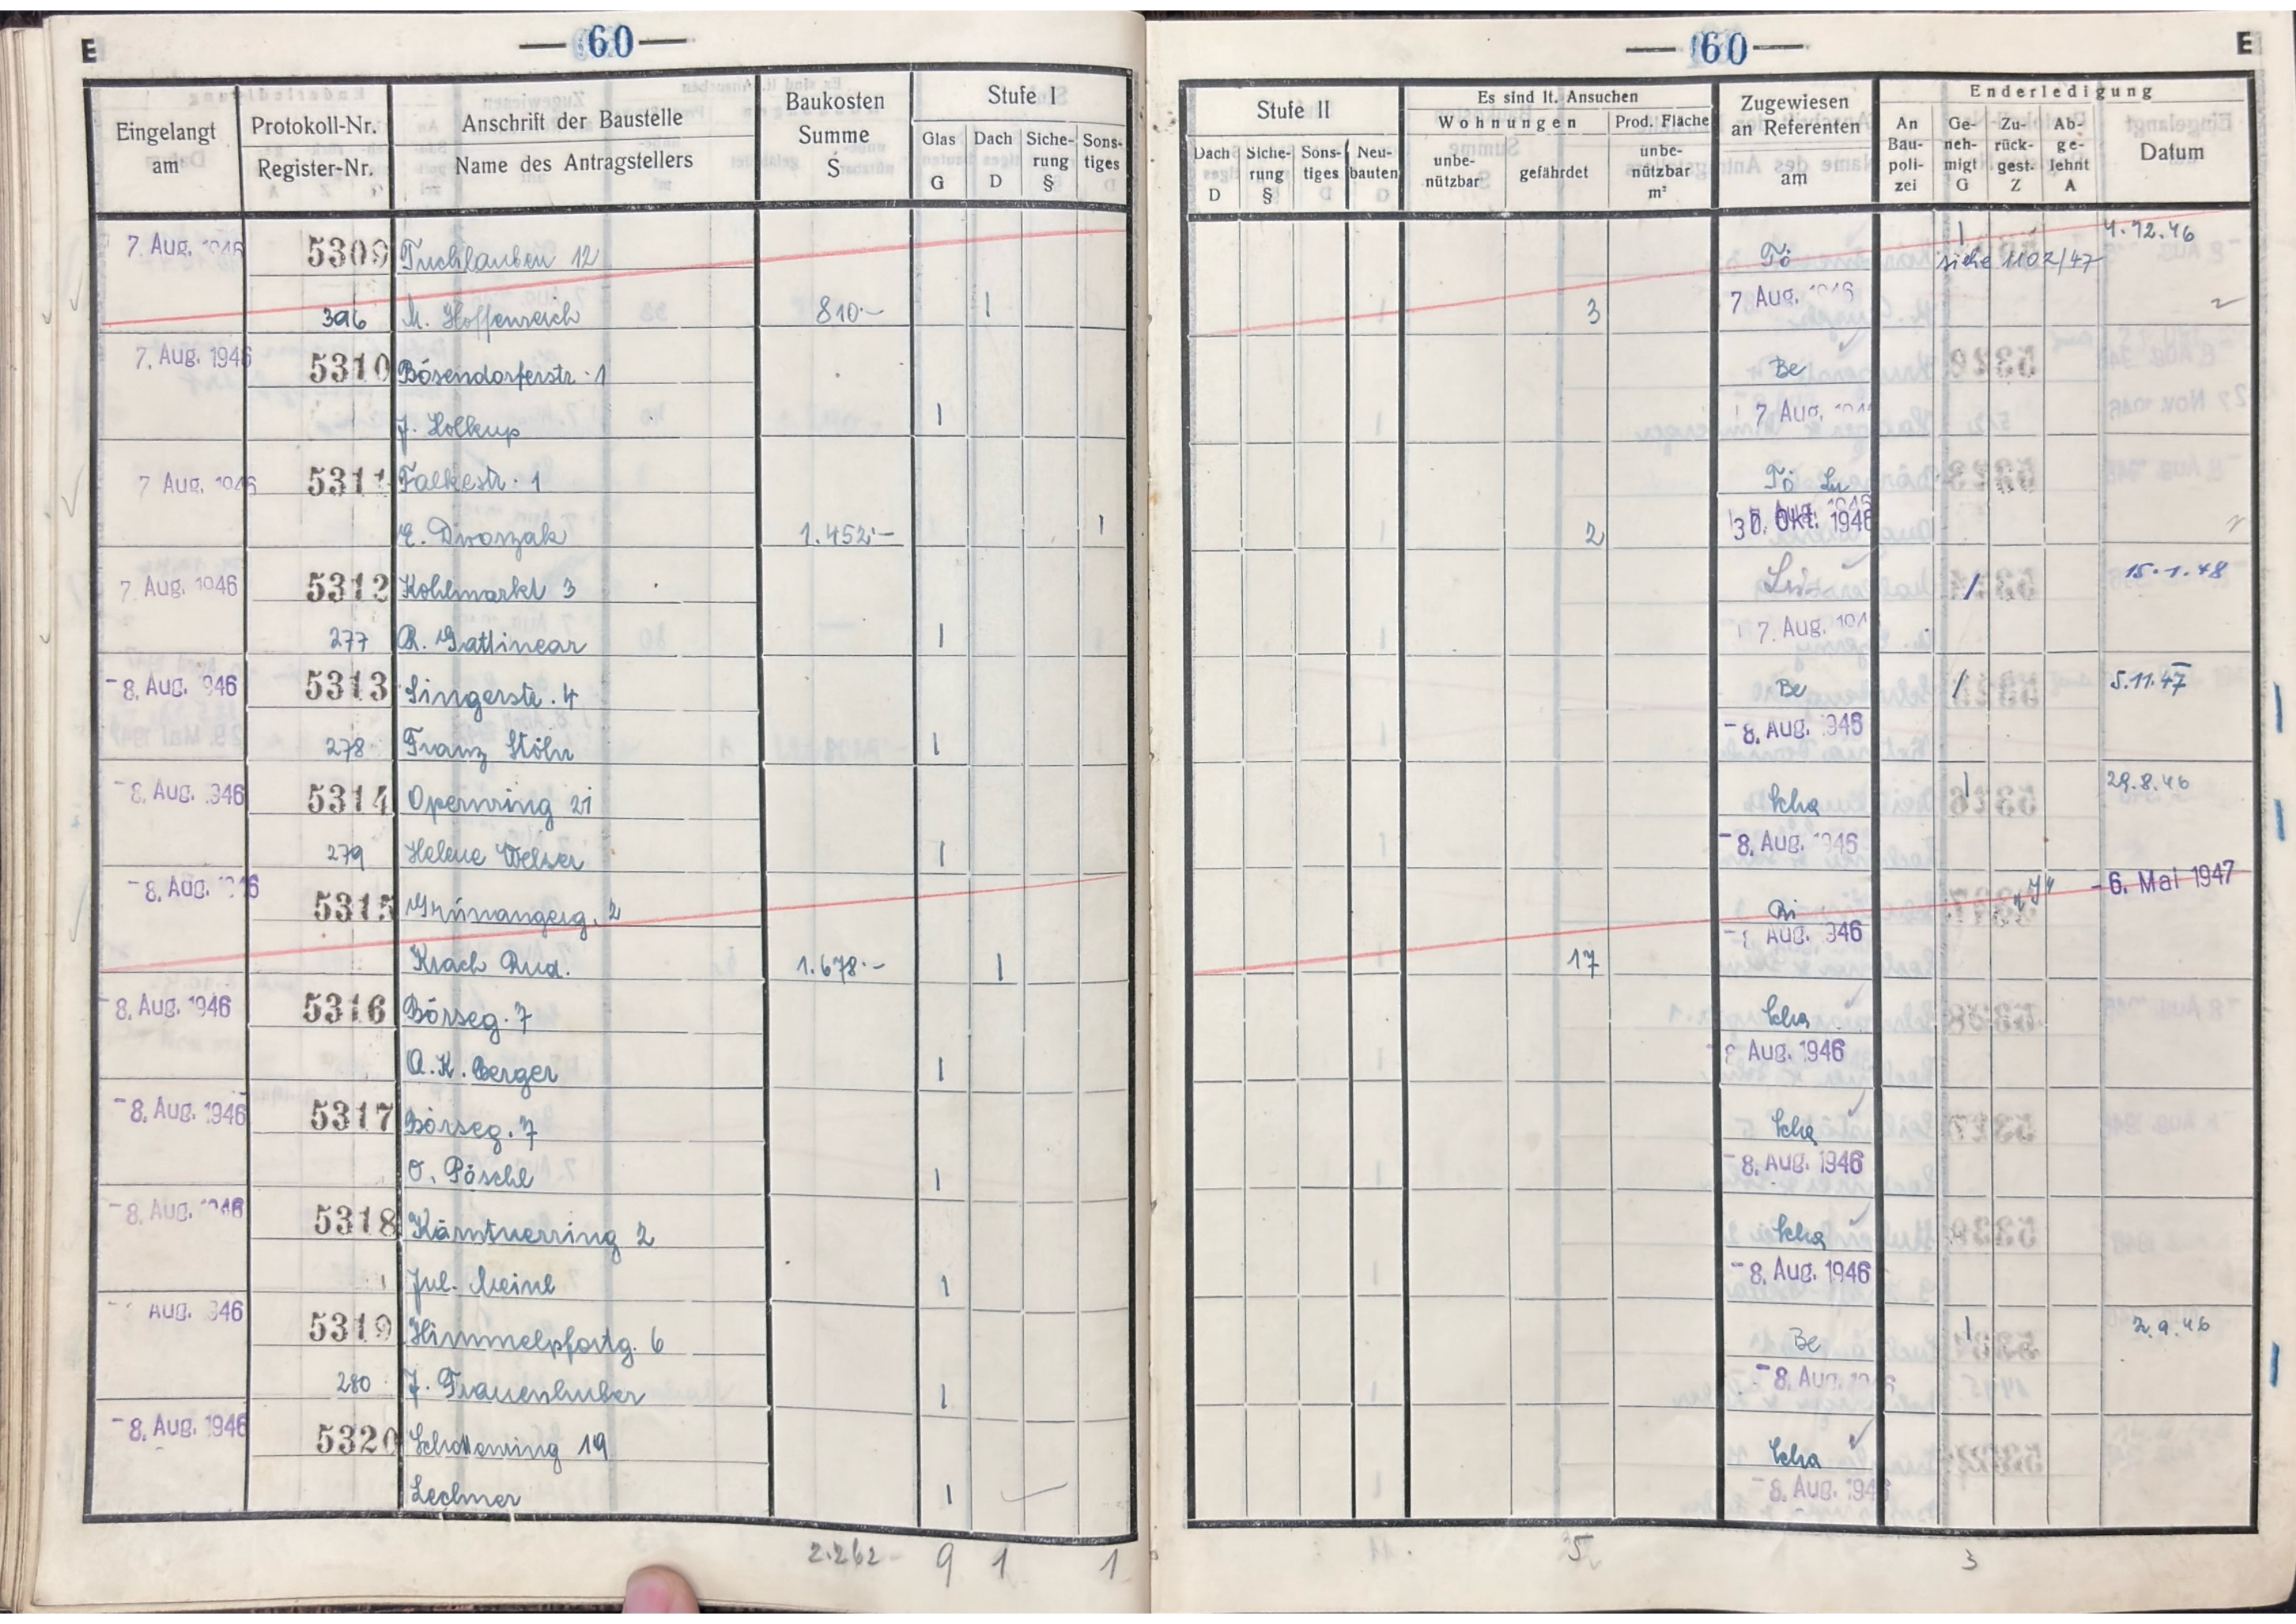 E — 60 —
Eingelangt am
Protokoll-Nr.
Register-Nr.
Anschrift der Baustelle
Name des Antragstellers
Baukosten Summe S
Stufe I
Glas G
Dach D
Siche-rung §
Sons-tiges
7. Aug. 1946 5309 Tuchlauben 12
396 M. Hoffenreich 810.- 1
7. Aug. 1946 5310 Bösendorferstr. 1
J. Holkup 1
7 Aug. 1946 5311 Falkestr. 1
E. Dworzak 1.452.- 1
7. Aug. 1946 5312 Kohlmarkt 3
277 R. Gattinear 1
- 8. Aug. 1946 5313 Singerstr. 4
278 Franz Stöhr 1
- 8. Aug. 1946 5314 Opernring 21
279 Helene Welser 1
- 8. Aug. 1946 5315 Grünangerg. 2
Krach Rud. 1.678.- 1
- 8. Aug. 1946 5316 Börseg. 7
A. K. Berger 1
- 8. Aug. 1946 5317 Börseg. 7
O. Pöschl 1
- 8. Aug. 1946 5318 Kärntnerring 2
Jul. Meinl 1
Aug. 1946 5319 Himmelpfortg. 6
280 J. Frauenhuber 1
- 8. Aug. 1946 5320 Schottenring 19
Lechner 1
2.262 - 9 1 1
— 60 — E
Stufe II
Dach D
Siche-rung §
Sons-tiges
Neu-bauten
Es sind lt. Ansuchen
Wohnungen
unbe-nützbar
gefährdet
Prod. Fläche
unbe-nützbar m²
Zugewiesen an Referenten am
Enderledigung
An Bau-poli-zei
Ge-neh-migt G
Zu-rück-gest. Z
Ab-ge-lehnt A
Datum
Tö 1 4.12.46
siehe 1102/47
3 7 Aug. 1946
Be
7 Aug. 1946
Tö Lu
2 30. Okt. 1946
Lu / 15.1.48
7. Aug. 194
Be / 5.11.47
- 8. Aug. 1946
Scha 1 29.8.46
- 8. Aug. 1946
Bi - 6. Mai 1947
17 Aug. 1946
Scha
8 Aug. 1946
Scha
- 8. Aug. 1946
Scha
- 8. Aug. 1946
Be 1 2.9.46
- 8. Aug. 1946
Scha
- 8. Aug. 1946
5 3